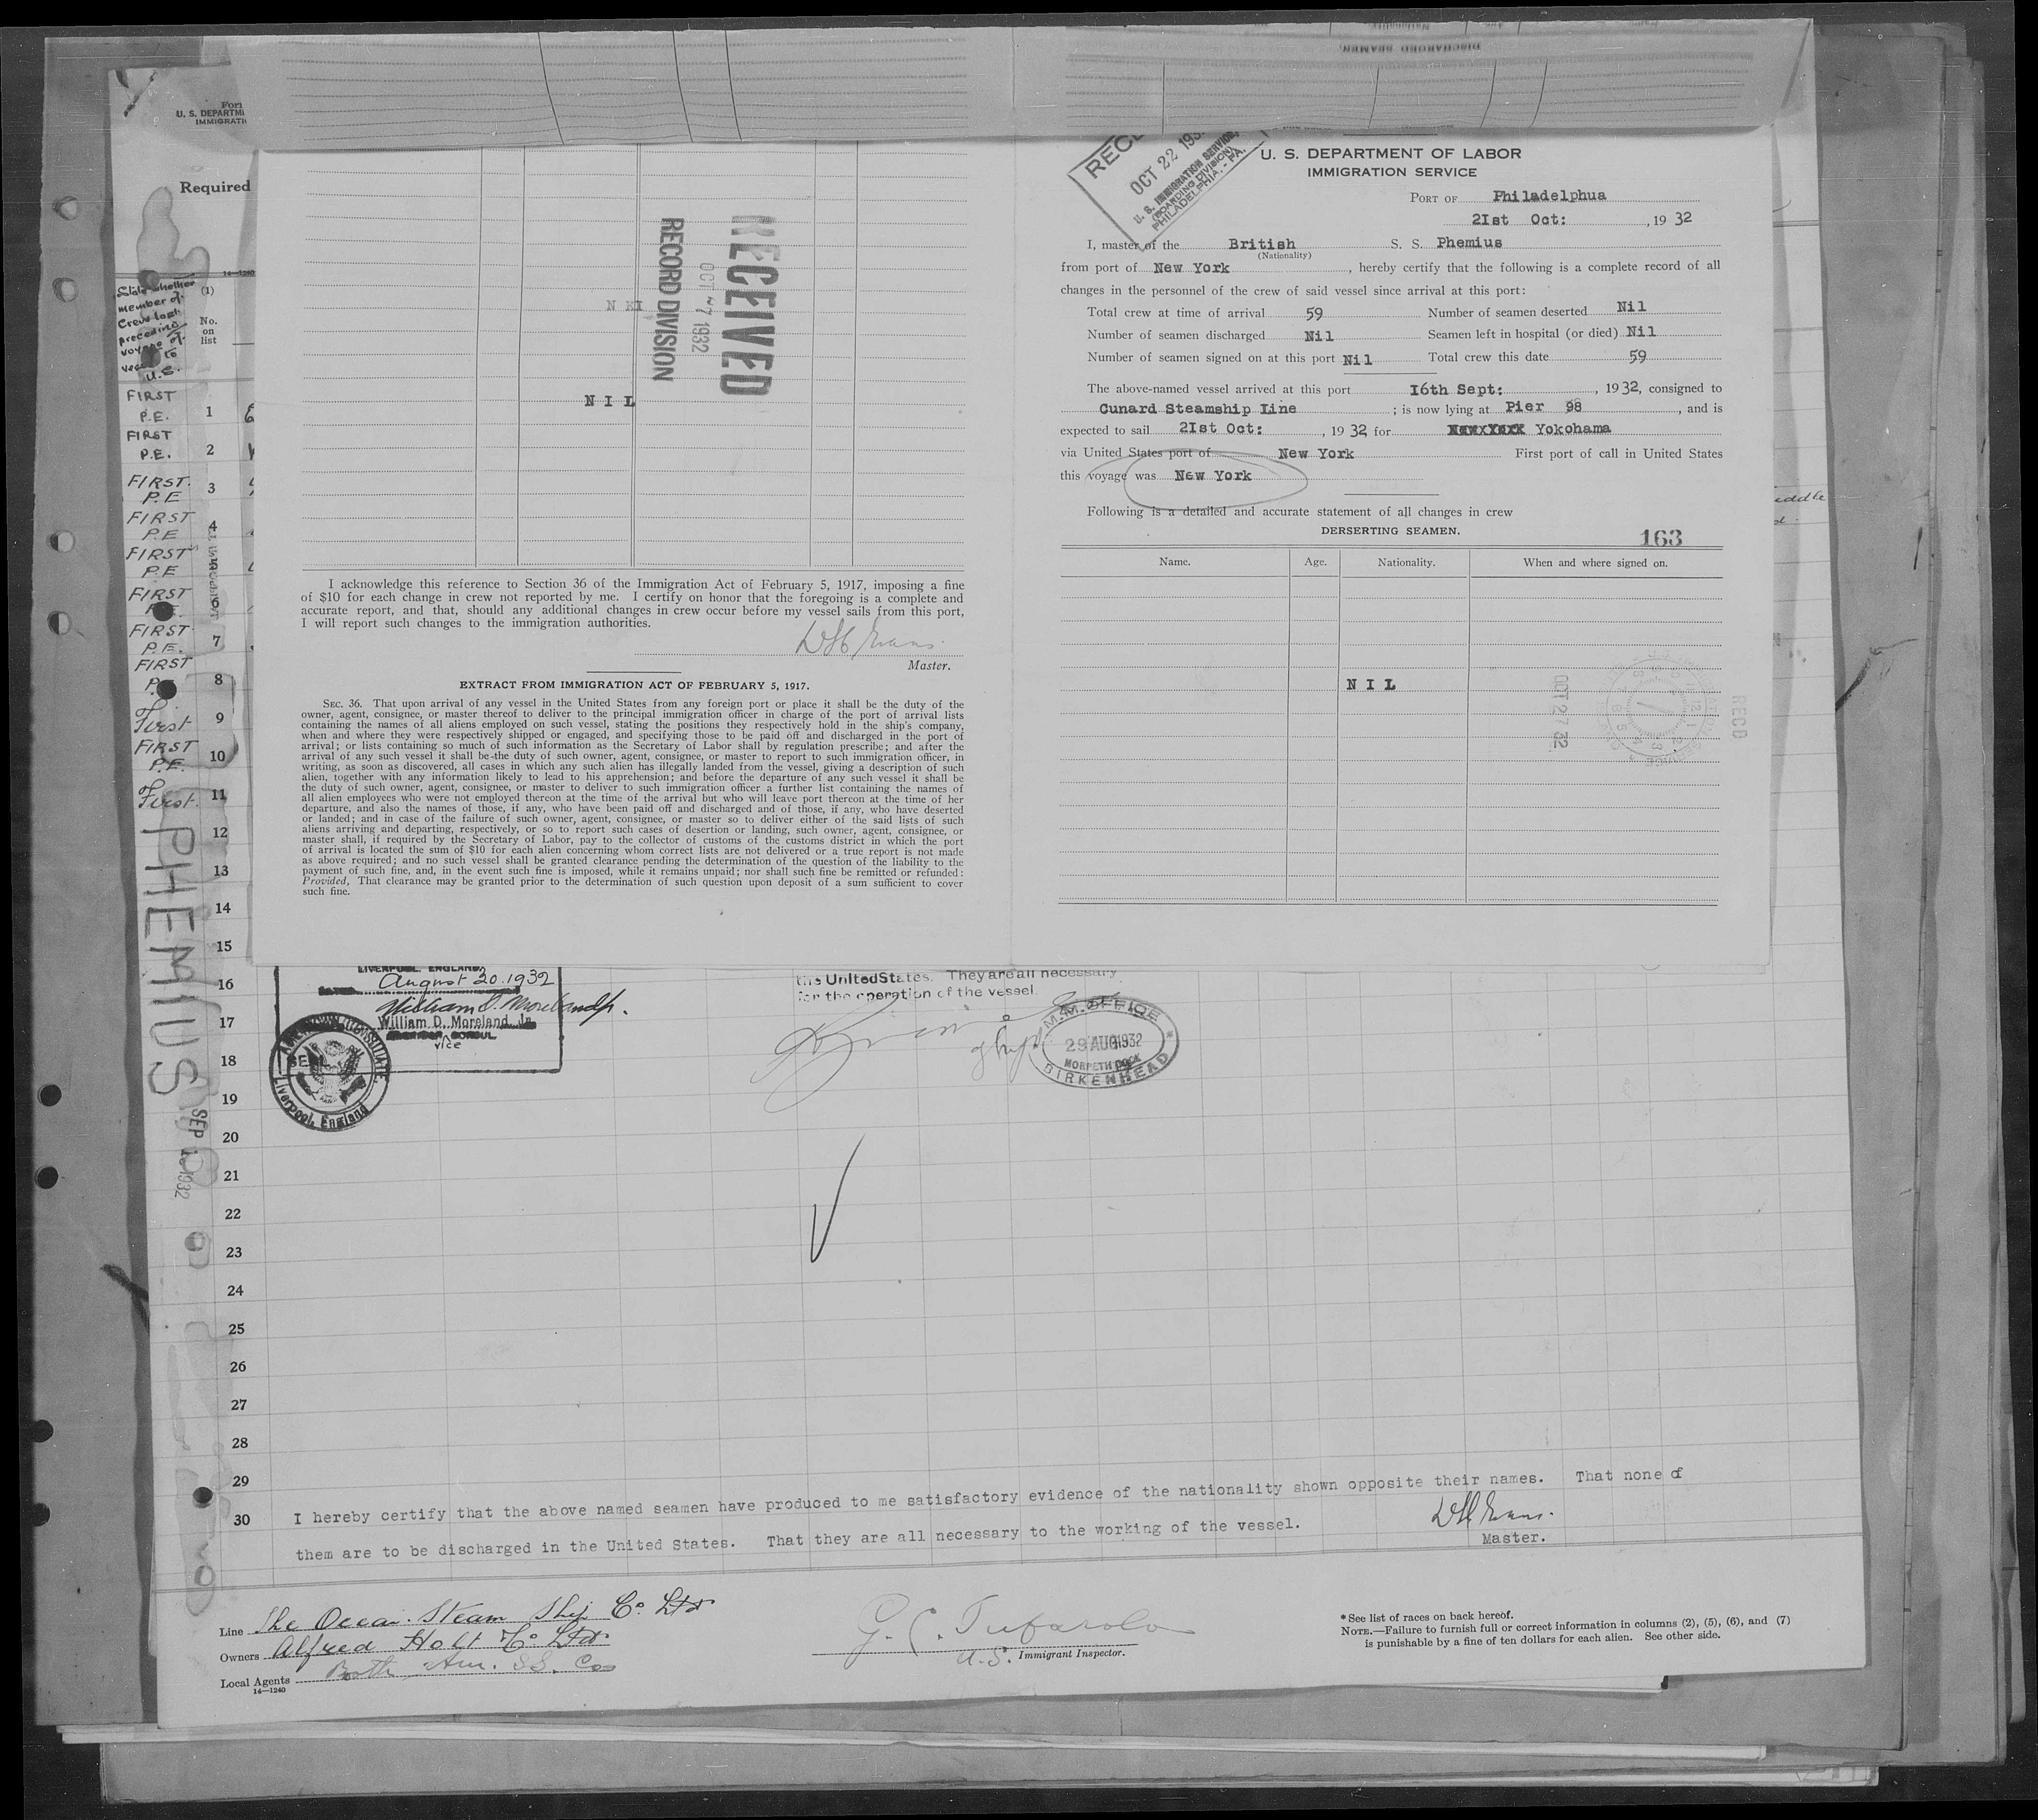 DISCHARGED SEAMEN.
U. S. DEPARTM
IMMIGRATI
Required
14—1240
State whether
member of
Crew last
preceding
voyage of
to
U.S.
(1)
No.
on
list
FIRST
P.E.
1
FIRST
P.E.
2
FIRST.
P.E
3
FIRST
P.E
4
FIRST
P.E
5
FIRST
6
FIRST
P.E.
7
FIRST
8
First
9
FIRST
P.E.
10
First.
11
12
13
14
15
16
17
18
19
20
21
22
23
24
25
26
27
28
29
30
PHEMIUS
SEP 1932
RECEIVED
OCT -7 1932
RECORD DIVISION
N I L
I acknowledge this reference to Section 36 of the Immigration Act of February 5, 1917, imposing a fine
of $10 for each change in crew not reported by me. I certify on honor that the foregoing is a complete and
accurate report, and that, should any additional changes in crew occur before my vessel sails from this port,
I will report such changes to the immigration authorities.
Evans
Master.
EXTRACT FROM IMMIGRATION ACT OF FEBRUARY 5, 1917.
SEC. 36. That upon arrival of any vessel in the United States from any foreign port or place it shall be the duty of the
owner, agent, consignee, or master thereof to deliver to the principal immigration officer in charge of the port of arrival lists
containing the names of all aliens employed on such vessel, stating the positions they respectively hold in the ship's company,
when and where they were respectively shipped or engaged, and specifying those to be paid off and discharged in the port of
arrival; or lists containing so much of such information as the Secretary of Labor shall by regulation prescribe; and after the
arrival of any such vessel it shall be the duty of such owner, agent, consignee, or master to report to such immigration officer, in
writing, as soon as discovered, all cases in which any such alien has illegally landed from the vessel, giving a description of such
alien, together with any information likely to lead to his apprehension; and before the departure of any such vessel it shall be
the duty of such owner, agent, consignee, or master to deliver to such immigration officer a further list containing the names of
all alien employees who were not employed thereon at the time of the arrival but who will leave port thereon at the time of her
departure, and also the names of those, if any, who have been paid off and discharged and of those, if any, who have deserted
or landed; and in case of the failure of such owner, agent, consignee, or master so to deliver either of the said lists of such
aliens arriving and departing, respectively, or so to report such cases of desertion or landing, such owner, agent, consignee, or
master shall, if required by the Secretary of Labor, pay to the collector of customs of the customs district in which the port
of arrival is located the sum of $10 for each alien concerning whom correct lists are not delivered or a true report is not made
as above required; and no such vessel shall be granted clearance pending the determination of the question of the liability to the
payment of such fine, and, in the event such fine is imposed, while it remains unpaid; nor shall such fine be remitted or refunded:
Provided, That clearance may be granted prior to the determination of such question upon deposit of a sum sufficient to cover
such fine.
OCT 22 193
U. S. IMMIGRATION SERVICE,
(BOARDING DIVISION)
PHILADELPHIA, - PA.
U. S. DEPARTMENT OF LABOR
IMMIGRATION SERVICE
PORT OF Philadelphua
2Ist Oct: , 19 32
I, master of the British S. S. Phemius
(Nationality)
from port of New York , hereby certify that the following is a complete record of all
changes in the personnel of the crew of said vessel since arrival at this port:
Total crew at time of arrival 59 Number of seamen deserted Nil
Number of seamen discharged Nil Seamen left in hospital (or died) Nil
Number of seamen signed on at this port Nil Total crew this date 59
The above-named vessel arrived at this port I6th Sept: , 19 32, consigned to
Cunard Steamship Line ; is now lying at Pier 98 , and is
expected to sail 2Ist Oct: , 19 32 for Yokohama
via United States port of New York First port of call in United States
this voyage was New York
Following is a detailed and accurate statement of all changes in crew
DERSERTING SEAMEN.
163
Name. Age. Nationality. When and where signed on.
N I L
OCT 27 32
REC'D
LIVERPOOL, ENGLAND
August 20. 1932
William D. Moreland Jr.
William D. Moreland, Jr.
vice CONSUL
SEAL
Liverpool, England
the United States. They are all necessary
for the operation of the vessel.
M.M. OFFICE
29 AUG 1932
MORPETH DOCK
BIRKENHEAD
I hereby certify that the above named seamen have produced to me satisfactory evidence of the nationality shown opposite their names. That none of
them are to be discharged in the United States. That they are all necessary to the working of the vessel.
Evans.
Master.
Line The Ocean Steam Ship Co. Ltd
Owners Alfred Holt & Co Ltd.
Local Agents Booth Am. S.S. Co
14—1240
G. C. Tufarolo
U.S. Immigrant Inspector.
* See list of races on back hereof.
NOTE.—Failure to furnish full or correct information in columns (2), (5), (6), and (7)
is punishable by a fine of ten dollars for each alien. See other side.